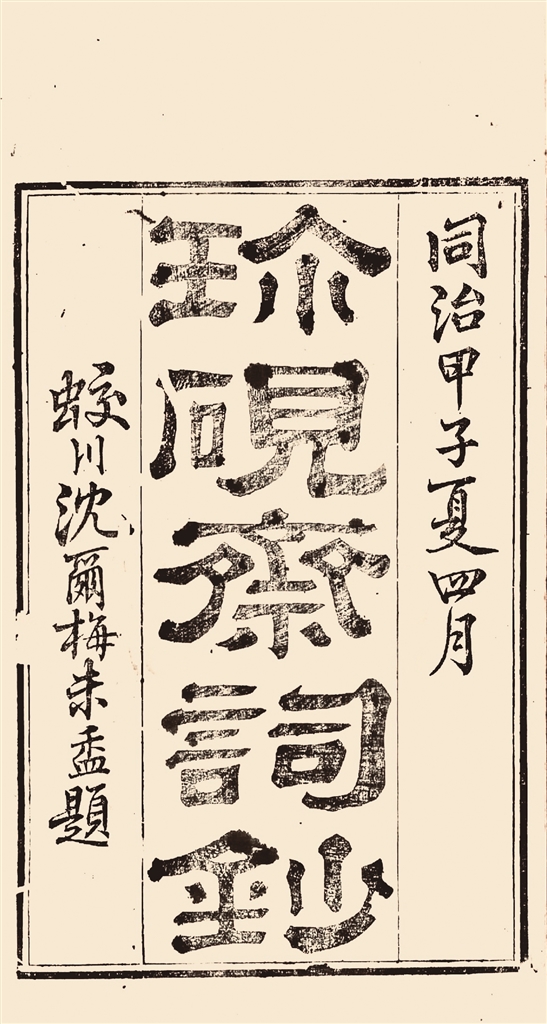 同治甲子夏四月
珎硯齋詞鈔
蛟川沈爾梅盉題